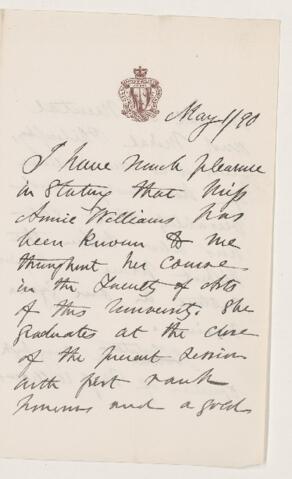 May 1/90
I have much pleasure
in stating that Miss
Annie Williams has
been known to me
throughout her course
in the Faculty of Arts
of this University. She
graduates at the close
of the present session
with first rank
honours and a gold